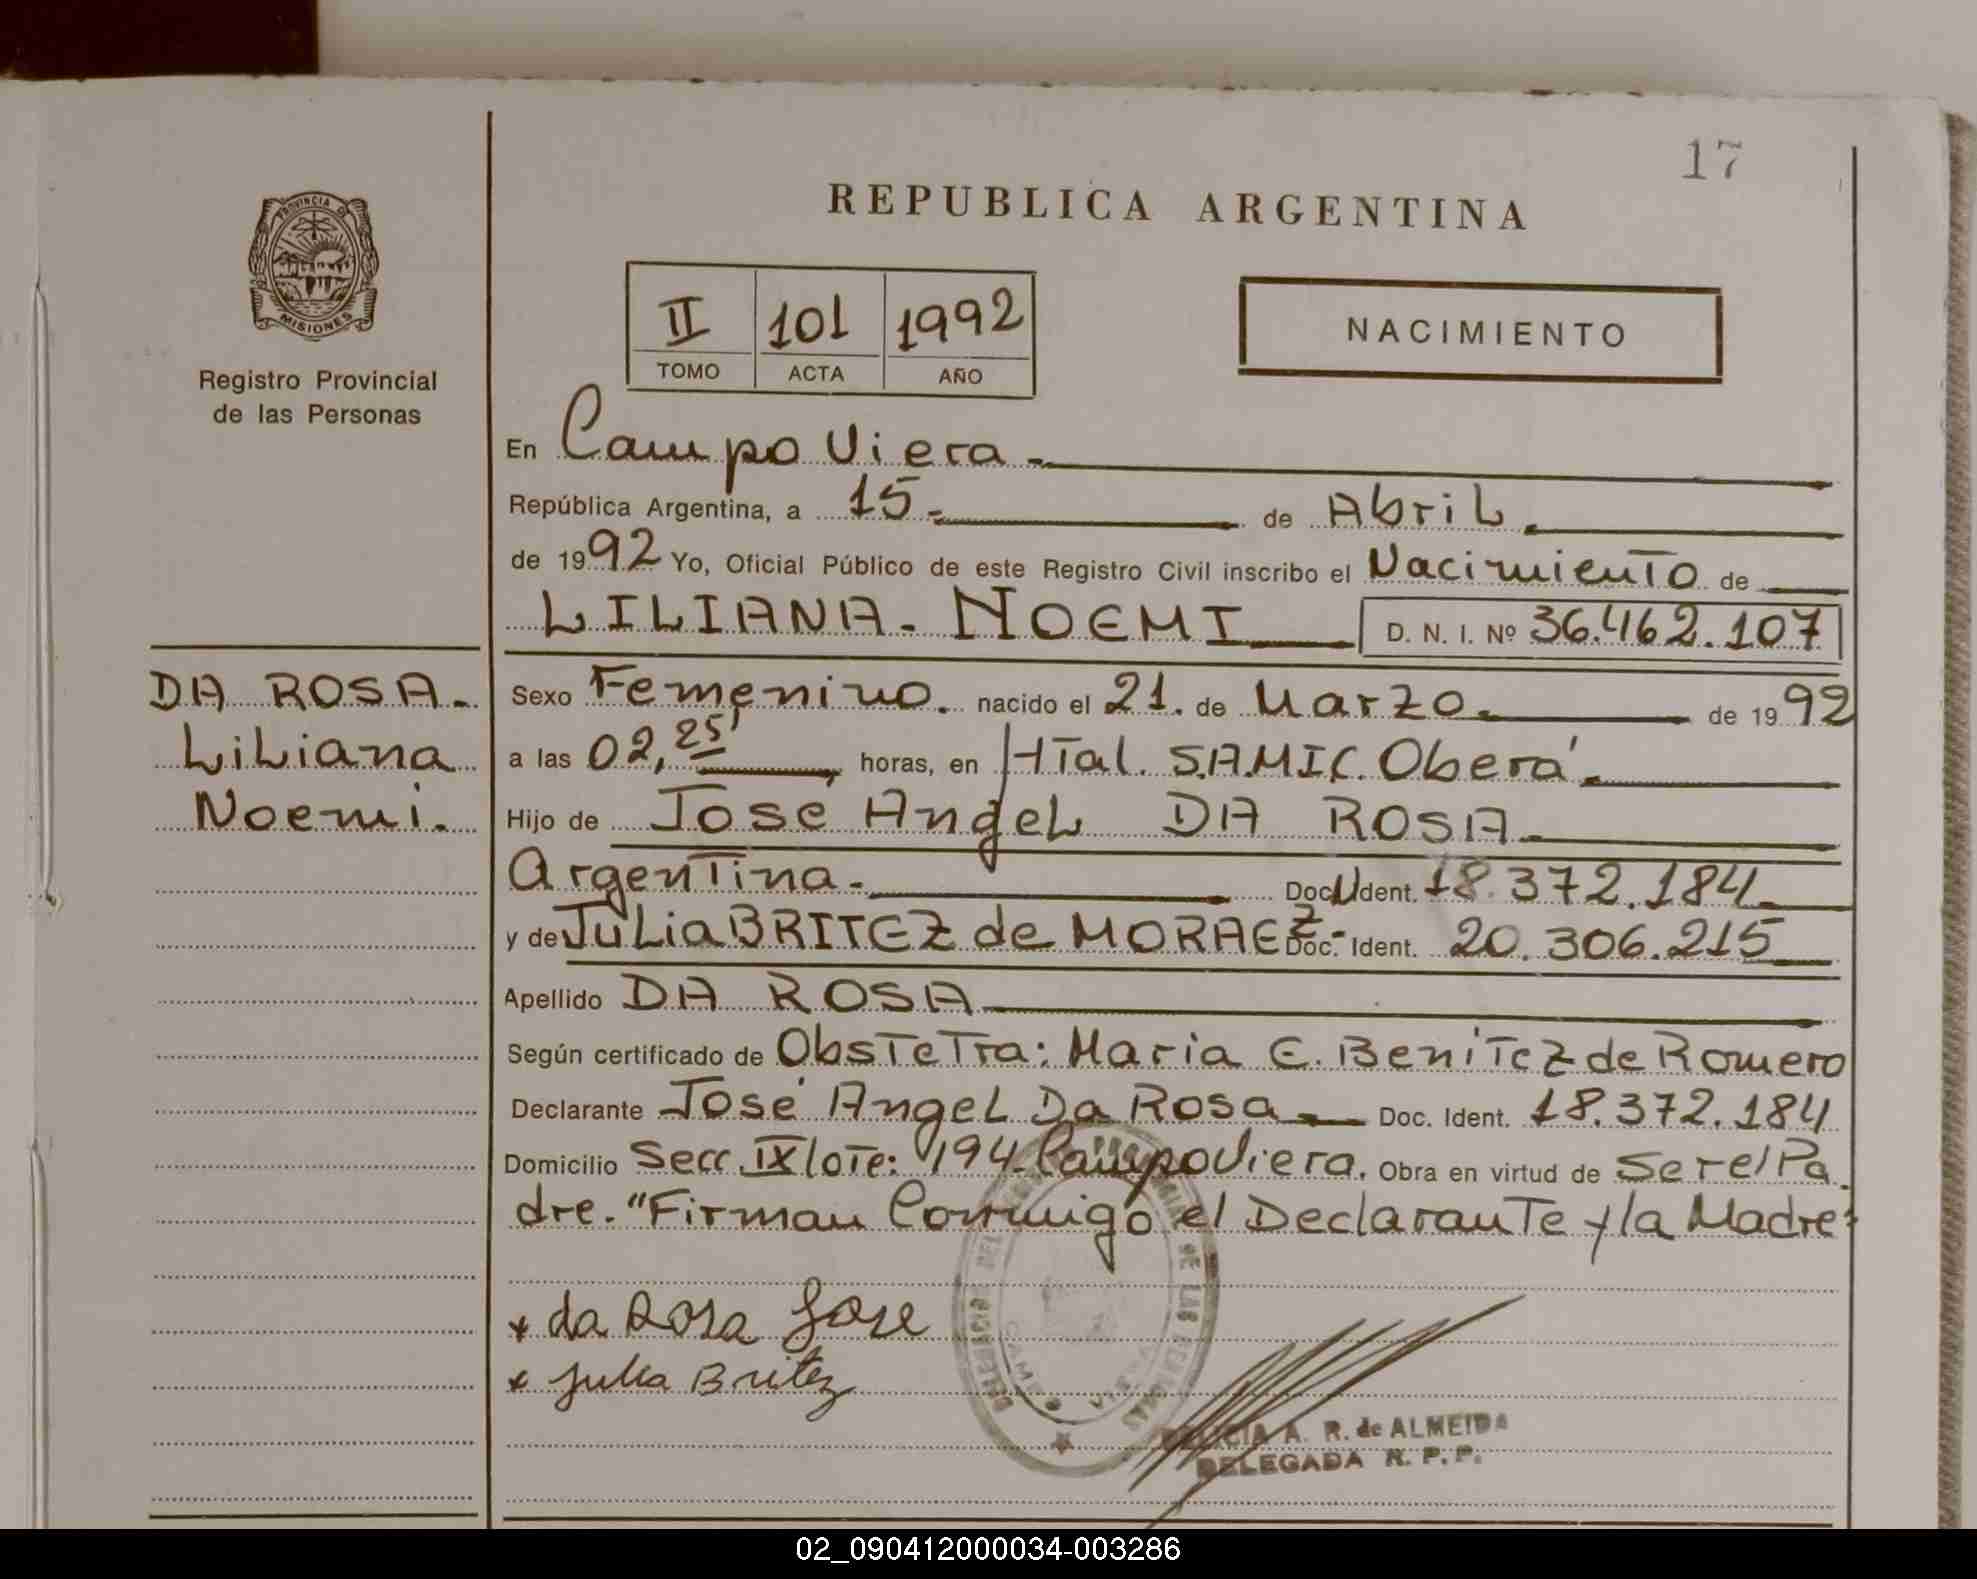 17
REPUBLICA ARGENTINA
PROVINCIA DE
MISIONES
Registro Provincial
de las Personas
II 101 1992
TOMO ACTA AÑO
NACIMIENTO
En Campo Viera.
República Argentina, a 15. de Abril.
de 1992 Yo, Oficial Público de este Registro Civil inscribo el Nacimiento de
LILIANA. NOEMI D. N. I. Nº 36.462.107
DA ROSA.
Liliana
Noemi.
Sexo Femenino. nacido el 21. de Marzo. de 1992
a las 02,25' horas, en Htal. S.A.M.I.C. Oberá.
Hijo de José Angel DA ROSA.
Argentina. Doc. Ident. 18.372.184
y de Julia BRITEZ de MORAEZ. Doc. Ident. 20.306.215
Apellido DA ROSA
Según certificado de Obstetra: Maria E. Benitez de Romero
Declarante José Angel Da Rosa Doc. Ident. 18.372.184
Domicilio Secc. IX lote: 194 Campo Viera. Obra en virtud de Ser el Pa
dre. "Firman Conmigo el Declarante y la Madre:
* da Rosa Jose
* Julia Britez
A. R. de ALMEIDA
DELEGADA R. P. P.
02_090412000034-003286